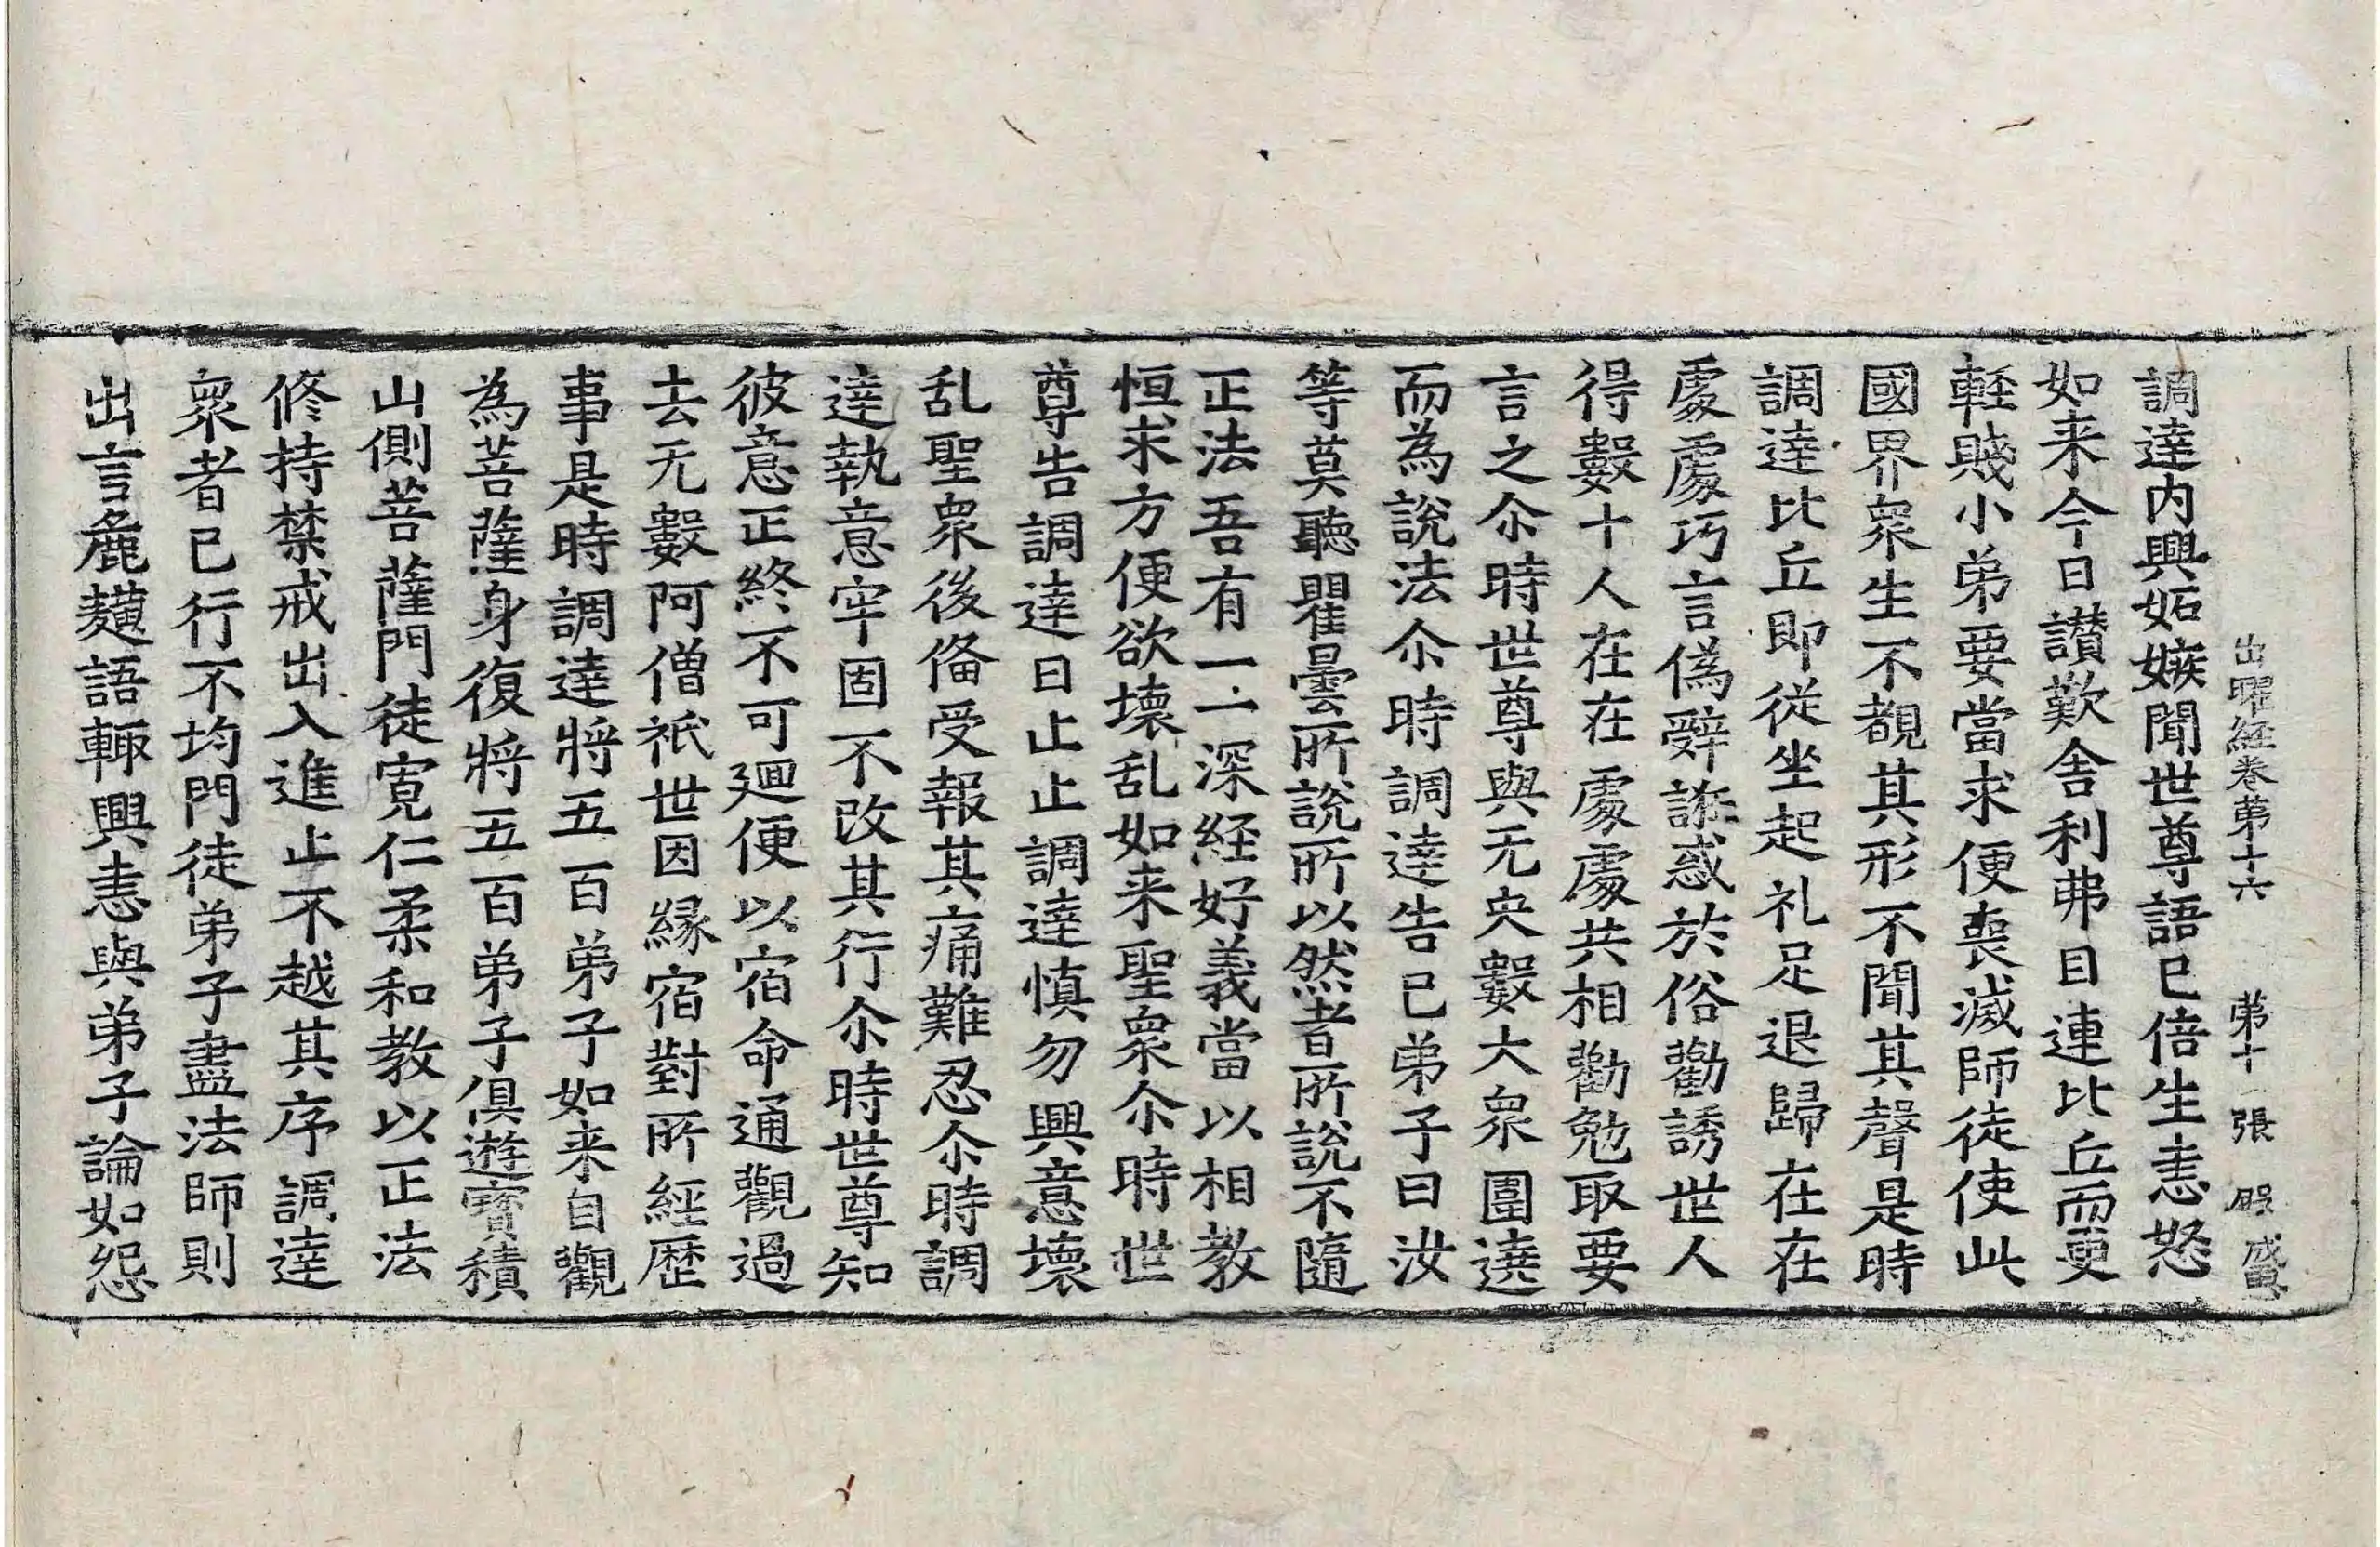 出曜経卷苐十六　苐十一張　殷　盛
調達内興妬嫉聞世尊語已倍生恚怒
如来今日讃歎舎利弗目連比丘而更
軽賤小弟要當求便喪滅師徒使此
國界衆生不覩其形不聞其聲是時
調達比丘即従坐起礼足退歸在在
處處巧言僞辭誑惑於俗勸誘世人
得數十人在在處處共相勸勉取要
言之尒時世尊與无央數大衆圍遶
而為說法尒時調達告已弟子曰汝
等莫聽瞿曇所說所以然者所說不隨
正法吾有一一深経好義當以相教
恒求方便欲壞乱如来聖衆尒時世
尊告調達曰止止調達慎勿興意壞
乱聖衆後俻受報其痛難忍尒時調
達執意牢固不改其行尒時世尊知
彼意正終不可廻便以宿命通觀過
去无數阿僧祇世因縁宿對所經歷
事是時調達將五百弟子如来自觀
為菩薩身復將五百弟子俱遊寳積
山側菩薩門徒寛仁柔和教以正法
修持禁戒出入進止不越其序調達
衆者已行不均門徒弟子盡法師則
出言麁䵃語輙興恚與弟子論如怨